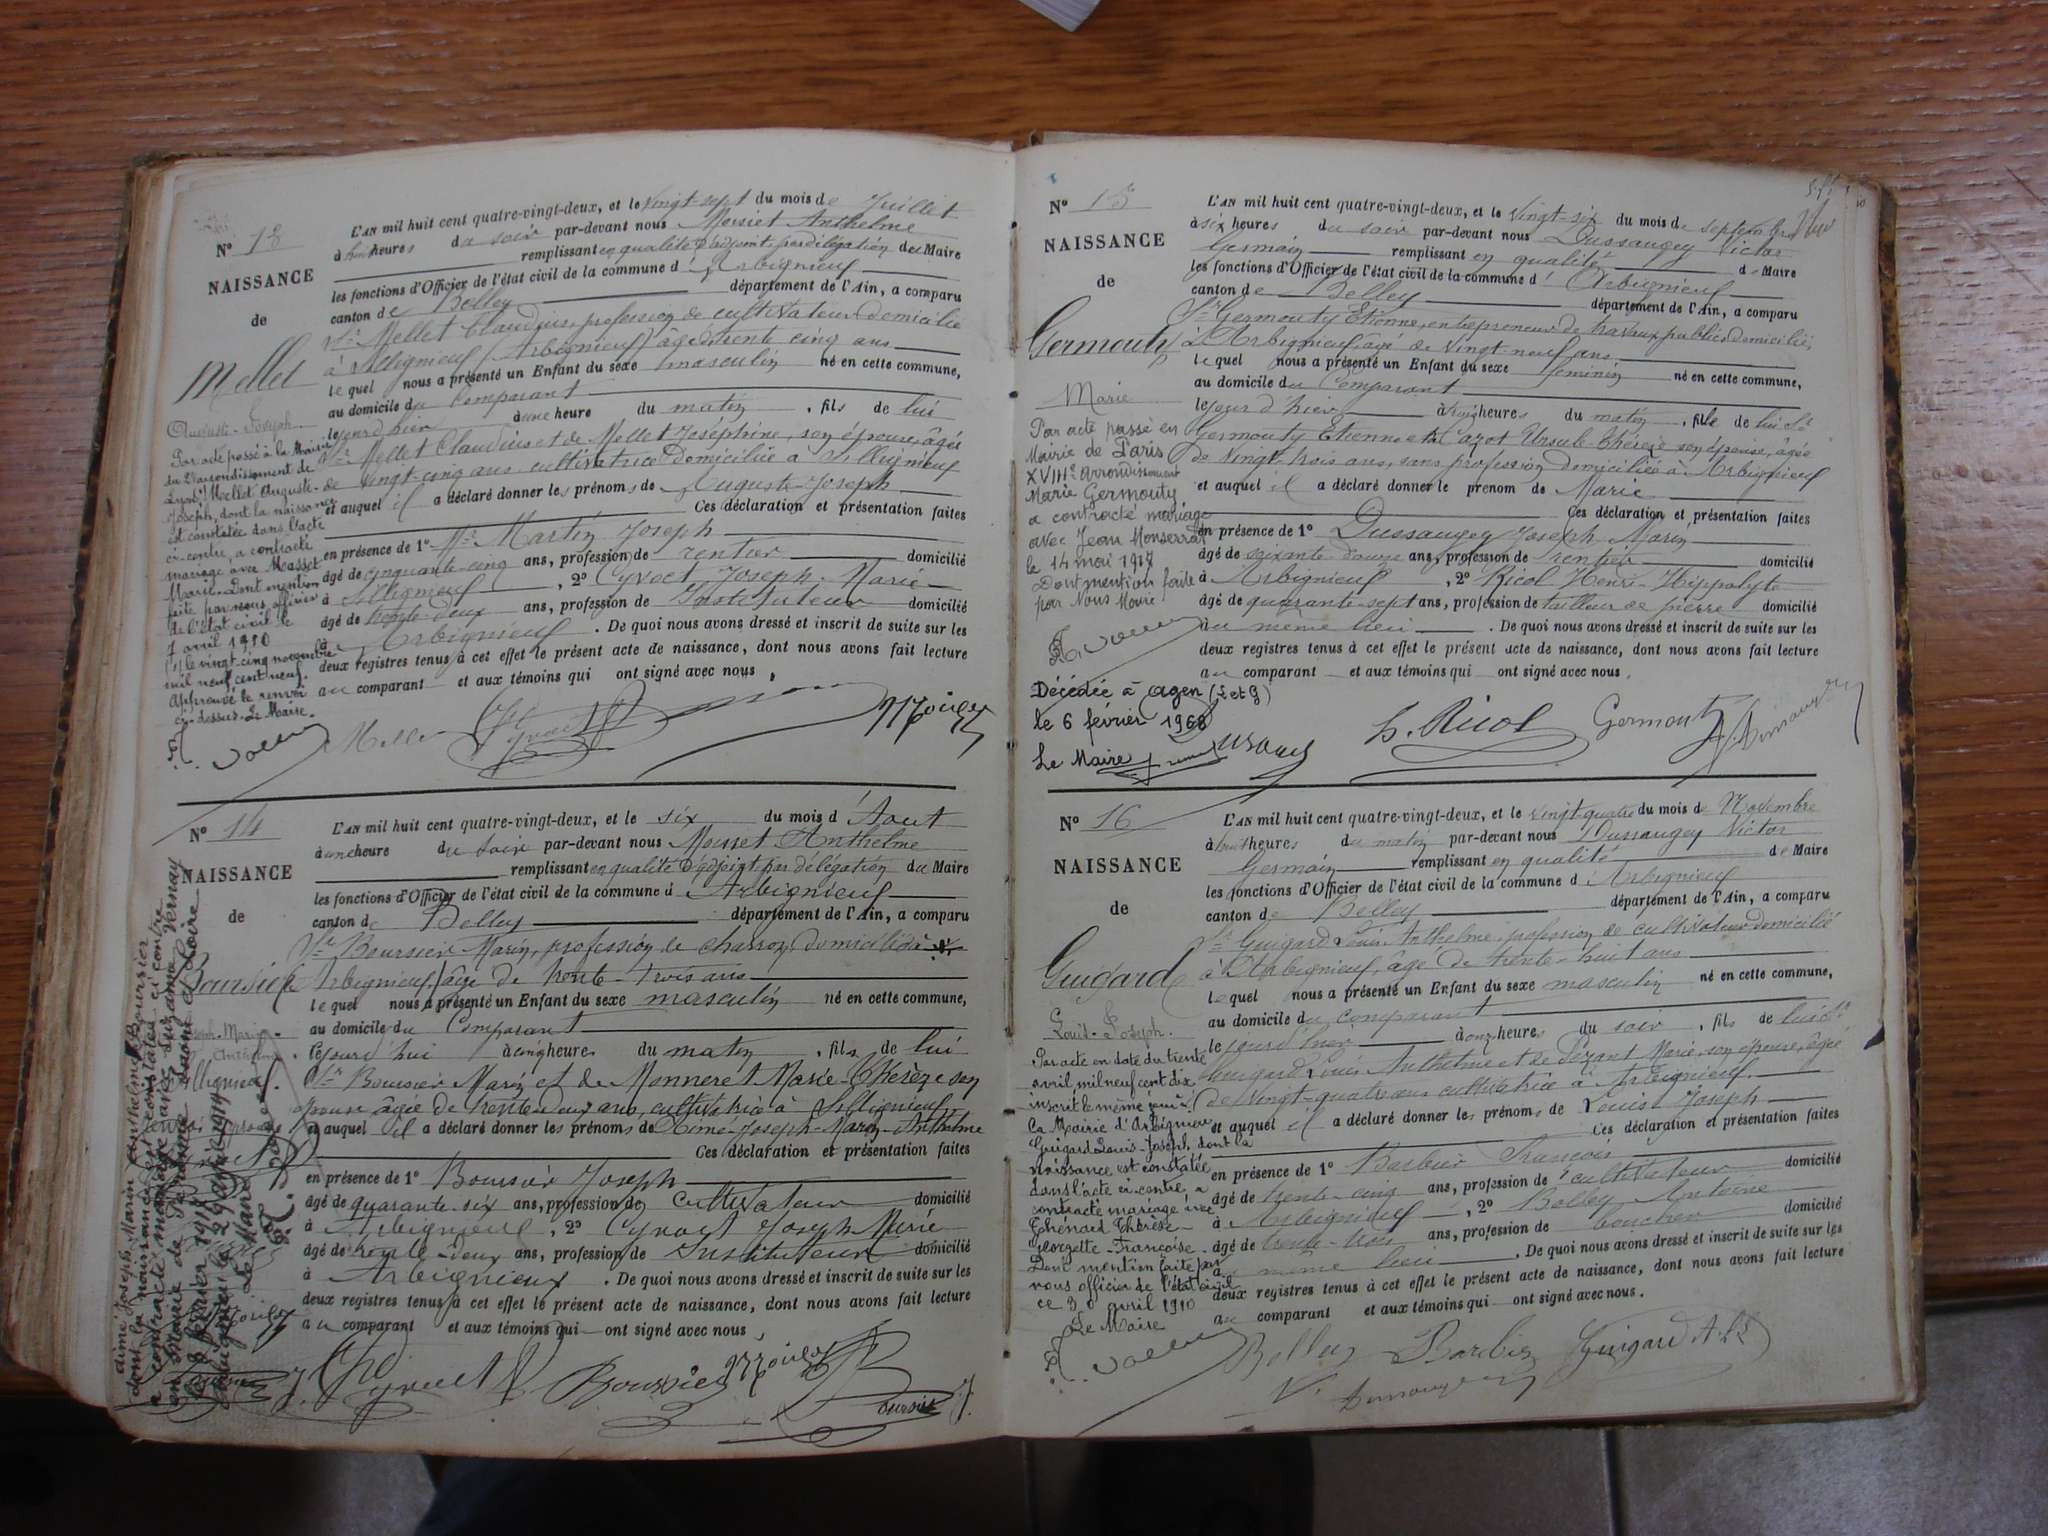 N° 13
NAISSANCE
de
Mellet
Auguste-Joseph
Par acte passé à la Mairie
du 2e arrondissement de
Lyon (1) Mellet Auguste-
Joseph, dont la naissance
est constatée dans l'acte
ci-contre, a contracté
mariage avec Masset
Marie. Dont mention
faite par nous officier
de l'état civil le
7 avril 1910
(1) le vingt-cinq novembre
mil neuf cent neuf.
Approuvé le renvoi
ci-dessus. Le Maire.
L'AN mil huit cent quatre-vingt-deux, et le vingt-sept du mois de Juillet
à huit heures du soir par-devant nous Moisset Anthelme
remplissant en qualité d'adjoint par délégation du Maire
les fonctions d'Officier de l'état civil de la commune d'Arbignieu
canton de Belley département de l'Ain, a comparu
Sr Mellet Claudius, profession de cultivateur domicilié
à Sillignieu (Arbignieu) âgé de trente cinq ans
lequel nous a présenté un Enfant du sexe masculin né en cette commune,
au domicile du Comparant
le jour d'hier à une heure du matin, fils de lui
Sr Mellet Claudius et de Mellet Joséphine, son épouse, âgée
de vingt-cinq ans cultivatrice domiciliée à Sillignieu
et auquel il a déclaré donner les prénoms de Auguste Joseph
Ces déclaration et présentation faites
en présence de 1° Mr Martin Joseph
âgé de cinquante-cinq ans, profession de rentier domicilié
à Sillignieu, 2° Cyvoct Joseph-Marie
âgé de trente-deux ans, profession de Instituteur domicilié
à Arbignieu. De quoi nous avons dressé et inscrit de suite sur les
deux registres tenus à cet effet le présent acte de naissance, dont nous avons fait lecture
au comparant et aux témoins qui ont signé avec nous,
Mellet Cyvoct
N° 14
NAISSANCE
de
Boursier
Sillignieu.
aimé Joseph Marin Anthelme Boursier
dont la naissance est constatée ci contre
a contracté mariage avec Suzanne Vernay
en Mairie de Péronne Saône et Loire
Le Maire
L'AN mil huit cent quatre-vingt-deux, et le six du mois d'Aout
à une heure du soir par-devant nous Moisset Anthelme
remplissant en qualité d'adjoint par délégation du Maire
les fonctions d'Officier de l'état civil de la commune d Arbignieu
canton de Belley département de l'Ain, a comparu
Sr Boursier Marin, profession de charron domicilié à
Arbignieu, âgé de trente-trois ans
lequel nous a présenté un Enfant du sexe masculin né en cette commune,
au domicile du Comparant
le jourd'hui à cinq heures du matin, fils de lui
Sr Boursier Marin et de Monneret Marie-Thérèze son
épouse âgée de trente-deux ans, cultivatrice à Sillignieu
et auquel il a déclaré donner les prénoms de Aimé-Joseph-Marin-Anthelme
Ces déclaration et présentation faites
en présence de 1° Boursier Joseph
âgé de quarante-six ans, profession de cultivateur domicilié
à Arbignieu, 2° Cyvoct Joseph Marie
âgé de trente-deux ans, profession de Instituteur domicilié
à Arbignieu. De quoi nous avons dressé et inscrit de suite sur les
deux registres tenus à cet effet le présent acte de naissance, dont nous avons fait lecture
au comparant et aux témoins qui ont signé avec nous,
Cyvoct Boursier
N° 15
NAISSANCE
de
Germouty
Marie
Par acte passé en
Mairie de Paris
XVIIIe arrondissement
Marie Germouty
a contracté mariage
avec Jean Monserrat
le 14 mai 1917
Dont mention faite
par Nous Maire
Décédée à Agen (L et G)
le 6 février 1968
Le Maire
L'AN mil huit cent quatre-vingt-deux, et le vingt-six du mois de septembre
à six heures du soir par-devant nous Dussaugey Victor
Germain remplissant en qualité de Maire
les fonctions d'Officier de l'état civil de la commune d'Arbignieu
canton de Belley département de l'Ain, a comparu
Sr Germouty Etienne, entrepreneur de travaux publics domicilié
à Arbignieu, âgé de vingt-neuf ans
lequel nous a présenté un Enfant du sexe féminin né en cette commune,
au domicile du Comparant
le jour d'hier à cinq heures du matin, fille de lui Sr
Germouty Etienne et de Cazot Ursule Thérèze son épouse, âgée
de vingt-trois ans, sans profession domiciliée à Arbignieu
et auquel il a déclaré donner le prénom de Marie
Ces déclaration et présentation faites
en présence de 1° Dussaugey Joseph Marin
âgé de soixante-douze ans, profession de rentier domicilié
à Arbignieu, 2° Ricol Henri-Hippolyte
âgé de quarante-sept ans, profession de tailleur de pierre domicilié
au même lieu. De quoi nous avons dressé et inscrit de suite sur les
deux registres tenus à cet effet le présent acte de naissance, dont nous avons fait lecture
au comparant et aux témoins qui ont signé avec nous.
h. Ricol Germouty
N° 16
NAISSANCE
de
Guigard
Louis-Joseph
Par acte en date du trente
avril mil neuf cent dix
inscrit le même jour à
la Mairie d'Arbignieu
Guigard Louis-Joseph, dont la
naissance est constatée
dans l'acte ci-contre, a
contracté mariage avec
Thénard Thérèse-
Georgette-Françoise.
Dont mention faite par
nous officier de l'état civil
ce 30 avril 1910
Le Maire
L'AN mil huit cent quatre-vingt-deux, et le vingt-quatre du mois de Novembre
à huit heures du matin par-devant nous Dussaugey Victor
Germain remplissant en qualité de Maire
les fonctions d'Officier de l'état civil de la commune d Arbignieu
canton de Belley département de l'Ain, a comparu
Sr Guigard Louis Anthelme profession de cultivateur domicilié
à Arbignieu, âgé de trente-huit ans
lequel nous a présenté un Enfant du sexe masculin né en cette commune,
au domicile du comparant
le jour d'hier à onze heures du soir, fils de lui Sr
Guigard Louis Anthelme et de Pezant Marie, son épouse, âgée
de vingt-quatre ans cultivatrice à Arbignieu.
et auquel il a déclaré donner les prénoms de Louis Joseph
Ces déclaration et présentation faites
en présence de 1° Barbier François
âgé de trente-cinq ans, profession de cultivateur domicilié
à Arbignieu, 2° Belley Antoine
âgé de trente-trois ans, profession de boucher domicilié
au même lieu. De quoi nous avons dressé et inscrit de suite sur les
deux registres tenus à cet effet le présent acte de naissance, dont nous avons fait lecture
au comparant et aux témoins qui ont signé avec nous.
Belley Barbier Guigard